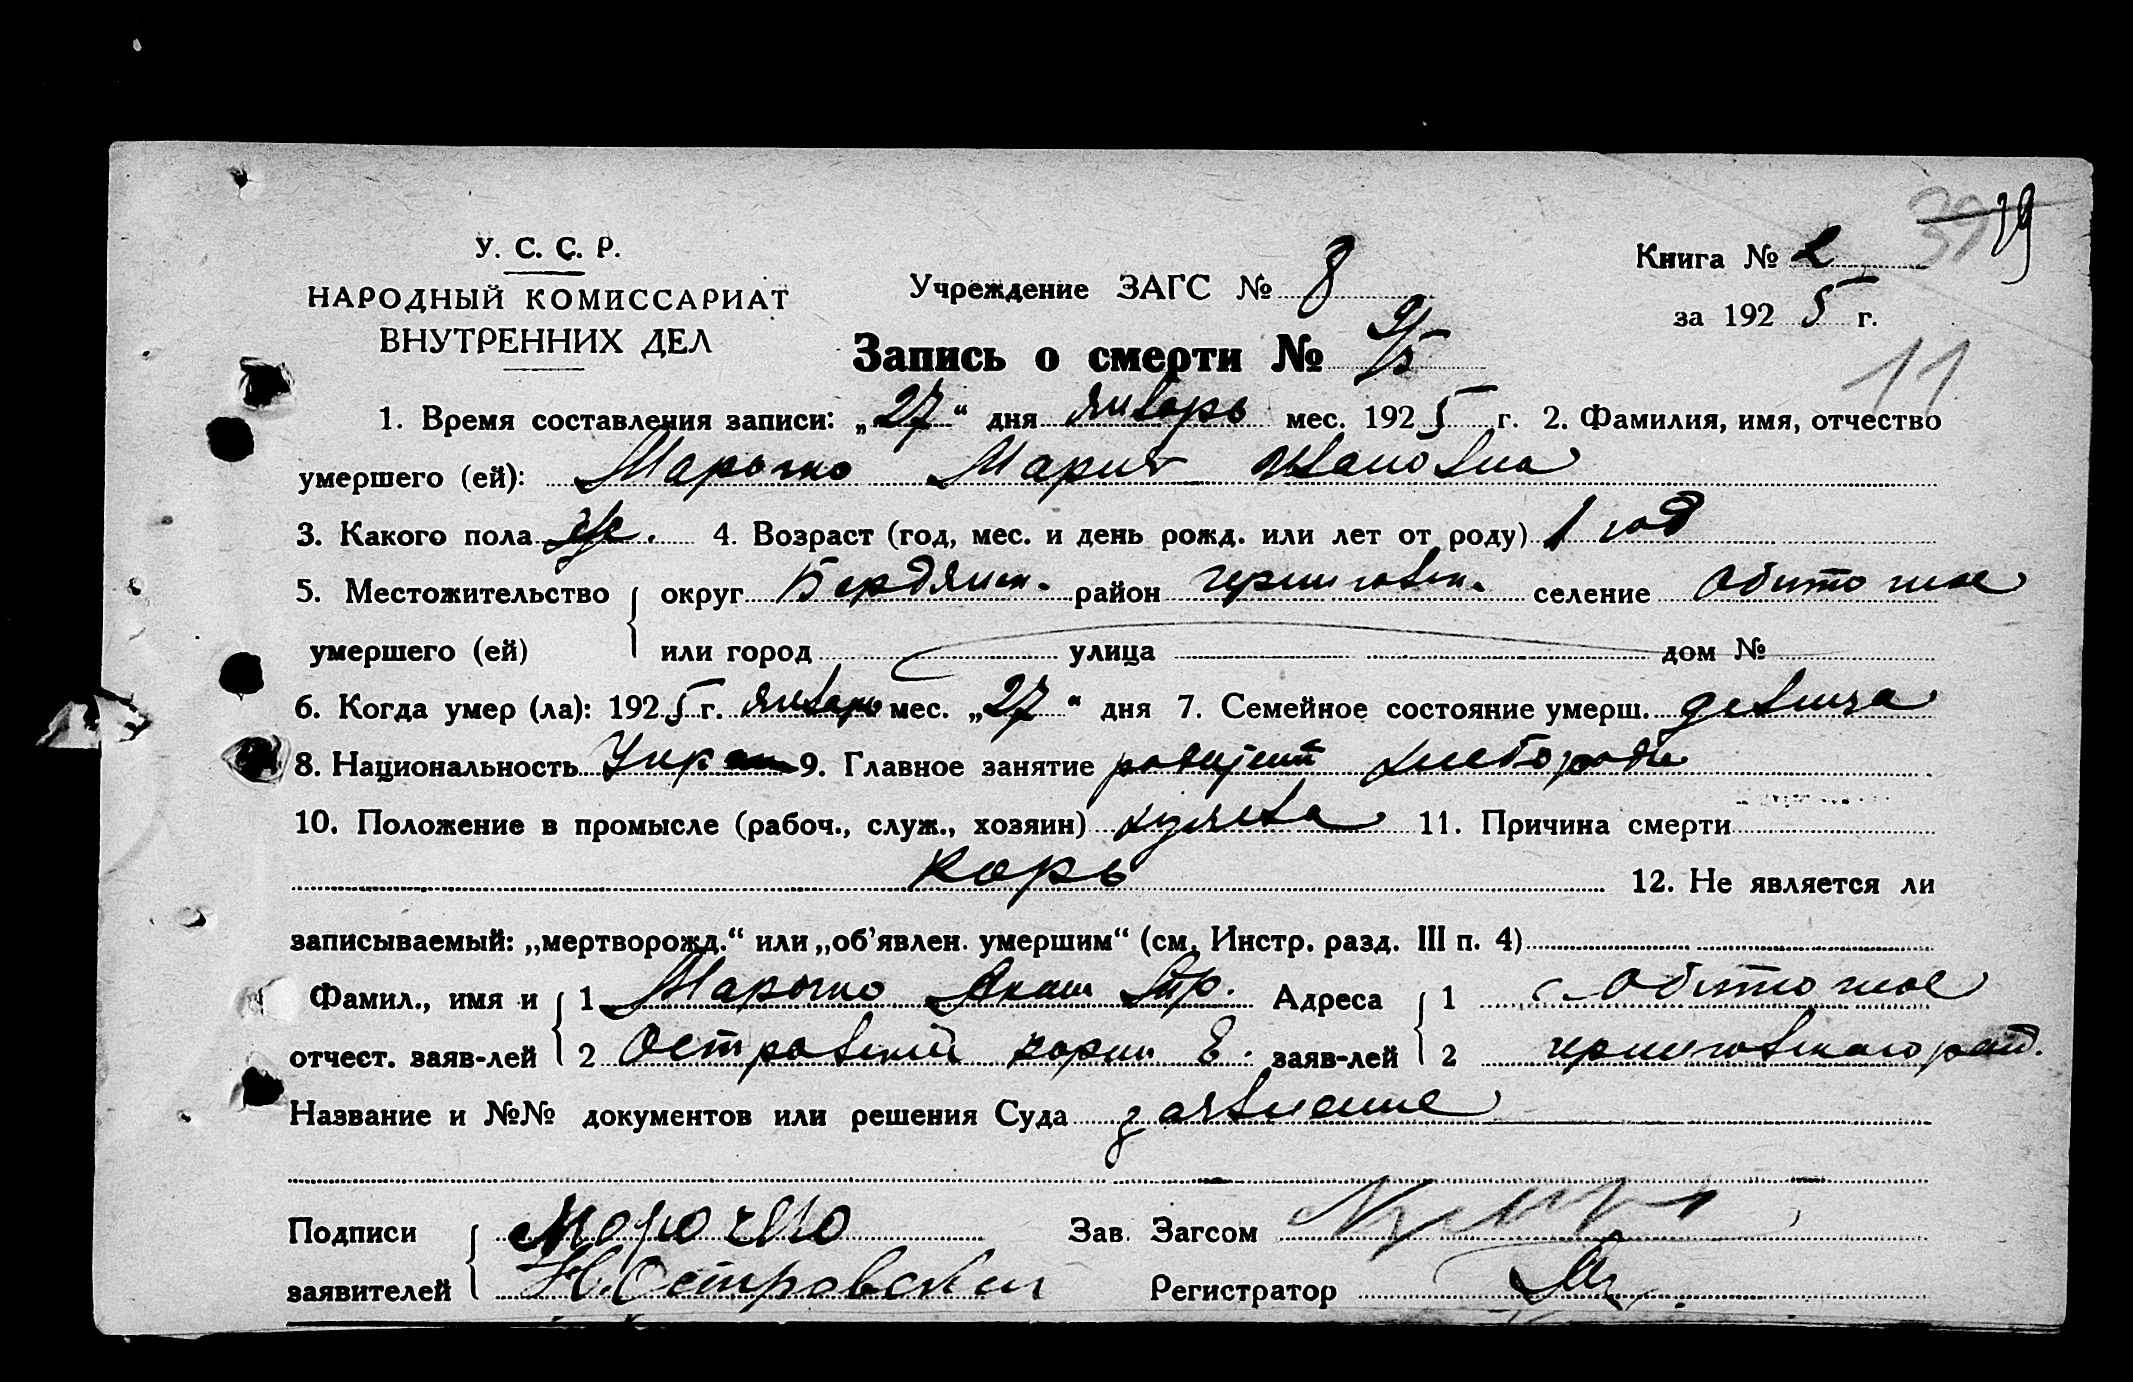 39 19
У. С. С. Р.
НАРОДНЫЙ КОМИССАРИАТ
ВНУТРЕННИХ ДЕЛ
Учреждение ЗАГС № 8
Книга № 2
за 1925 г.
Запись о смерти № 9/5
11
1. Время составления записи: „27“ дня январь мес. 1925 г. 2. Фамилия, имя, отчество
умершего (ей): Марочко Мария
3. Какого пола ж. 4. Возраст (год, мес. и день рожд. или лет от роду) 1 год
5. Местожительство округ Бердянск. район черниговск. селение Обиточное
умершего (ей) или город улица дом №
6. Когда умер (ла): 1925 г. январь мес. „27“ дня 7. Семейное состояние умерш. девица
8. Национальность Укр 9. Главное занятие хлебороба
10. Положение в промысле (рабоч., служ., хозяин) хозяева 11. Причина смерти
корь 12. Не является ли
записываемый: „мертворожд.“ или „об’явлен. умершим“ (см. Инстр. разд. III п. 4)
Фамил., имя и 1 Марочко Адреса 1 с. Обиточное
отчест. заяв-лей 2 Островский Е. заяв-лей 2 черниговского рай.
Название и №№ документов или решения Суда заявление
Подписи Марочко Зав. Загсом
заявителей Н. Островский Регистратор